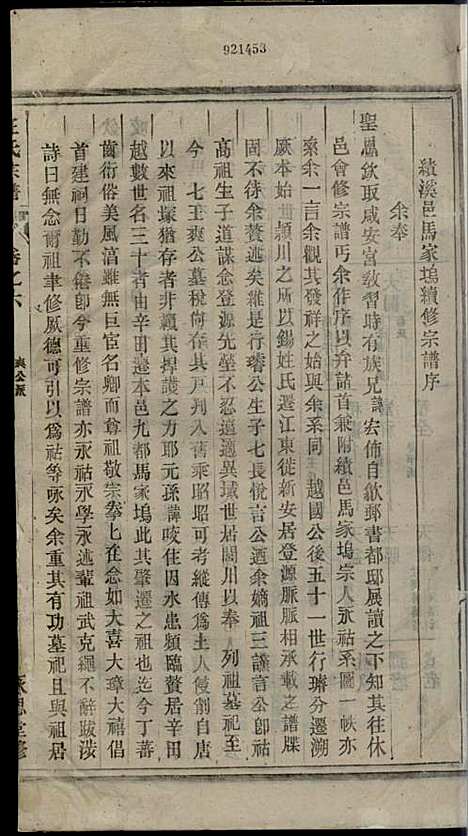 921453
績溪邑馬家塢續修宗譜序
余奉
聖恩欽取咸安宮敎習時有族兄諱宏佈自歙郵書都邸展讀之下知其往休
邑會修宗譜丐余作序以弁諸首兼附績邑馬家塢宗人永祜系圖一帙亦
索余一言余觀其發祥之始與余系同　越國公後五十一世行璿分遷溯
厥本始　頴川之所以錫姓氏遷江東徙新安居登源脈脈相承載之譜牒
固不待余贅述矣維是行璿公生子七長悅言公迺余嫡祖三謠言公卽祜
高祖生子道謀念登源先塋不忍遠適異域世居閫川以奉　列祖墓祀至
今　七王爽公墓稅尚存其戸判入舊乘昭昭可考縱傳爲土人侵割自唐
以來祖塚猶存者非頼其捍護之力耶元孫諱咬住因水患頻臨贅居辛田
越數世名三十者由辛田遷本邑九都馬家塢此其肇遷之祖也迄今丁蕃
齒衍俗美風淳雖無巨宦名卿而尊祖敬宗拳上在念如大喜大璋大禧倡
首建祠日勤不倦卽今重修宗譜亦永祜永學永述輩祖武克繩不辭跋涉
詩曰無念爾祖聿修厥德可引以爲祜等咏矣余重其有功墓祀且與祖居
汪氏宗譜
卷之六
爽公派